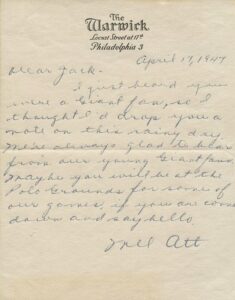 The
Warwick
Locust Street at 17th
Philadelphia 3
April 17, 1947
Dear Jack.
I just heard you
were a Giant fan, so I
thought I'd drop you a
note on this rainy day.
We're always glad to hear
from our young Giant fans.
Maybe you will be at the
Polo Grounds for some of
our games, if you are come
down and say hello.
Mel Ott